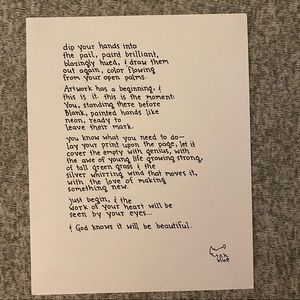 dip your hands into
the pail, paint brilliant,
blazingly hued, & draw them
out again, color flowing
from your open palms.
Artwork has a beginning, &
this is it. this is the moment:
You, standing there before
Blank, painted hands like
neon, ready to
leave their mark.
you know what you need to do—
lay your print upon the page, let it
cover the empty with genius, with
the awe of young life growing strong,
of tall green grass & the
silver whirring wind that moves it,
with the love of making
something new.
just begin, & the
work of your heart will be
seen by your eyes...
& God knows it will be beautiful.
blue